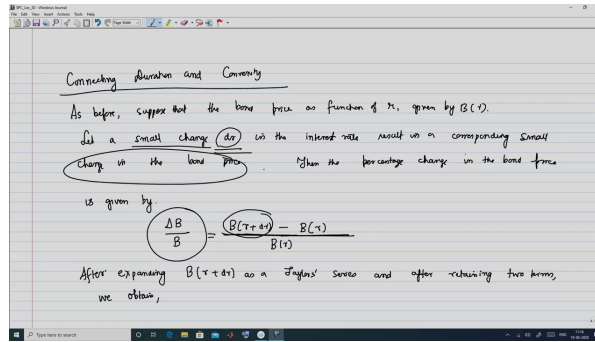 BPS_Lec_30 - Windows Journal
File Edit View Insert Actions Tools Help
Page Width
Connecting Duration and Convexity
As before, suppose that the bond price as function of r, given by B(r).
Let a small change dr in the interest rate result in a corresponding small
change in the bond price. Then the percentage change in the bond price
is given by.
ΔB/B = (B(r+dr) - B(r))/B(r)
After expanding B(r+dr) as a Taylors' Series and after retaining two terms,
we obtain,
Type here to search
ENG